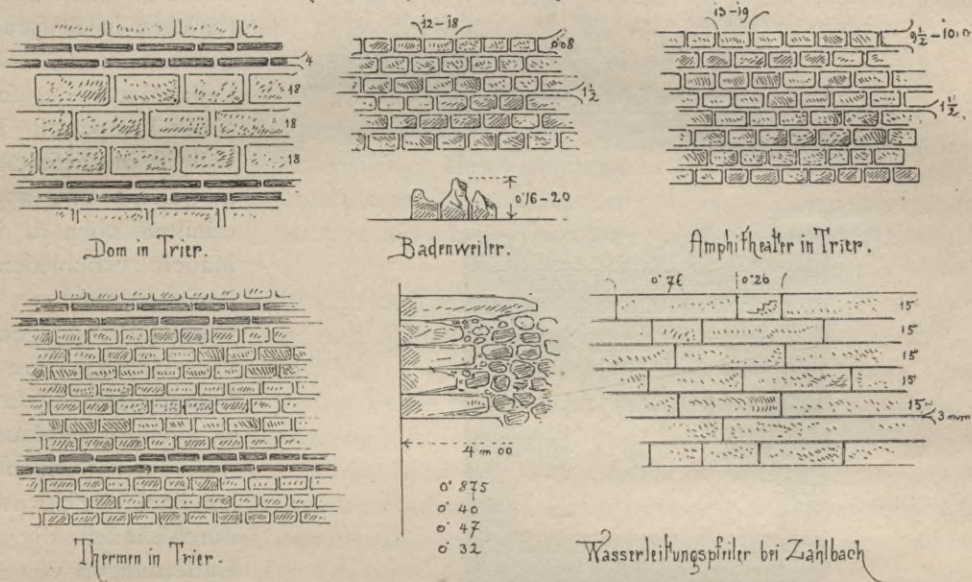 4
18
18
18
Dom in Trier.
12-18
0.08
1½
0.16-20
Badenweiler.
13-19
9½-10
1½
Amphitheater in Trier.
Thermen in Trier.
4 m 00
0.875
0.40
0.47
0.32
0.76 0.26
15
15
15
15
15
3 mm
Wasserleitungspfeiler bei Zahlbach